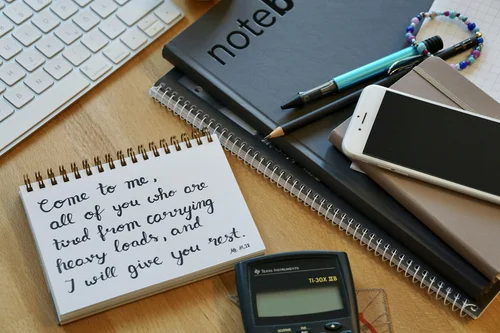 noteb
Come to me,
all of you who are
tired from carrying
heavy loads, and
I will give you rest.
Mt. 11,28
TEXAS INSTRUMENTS
TI-30X IIB